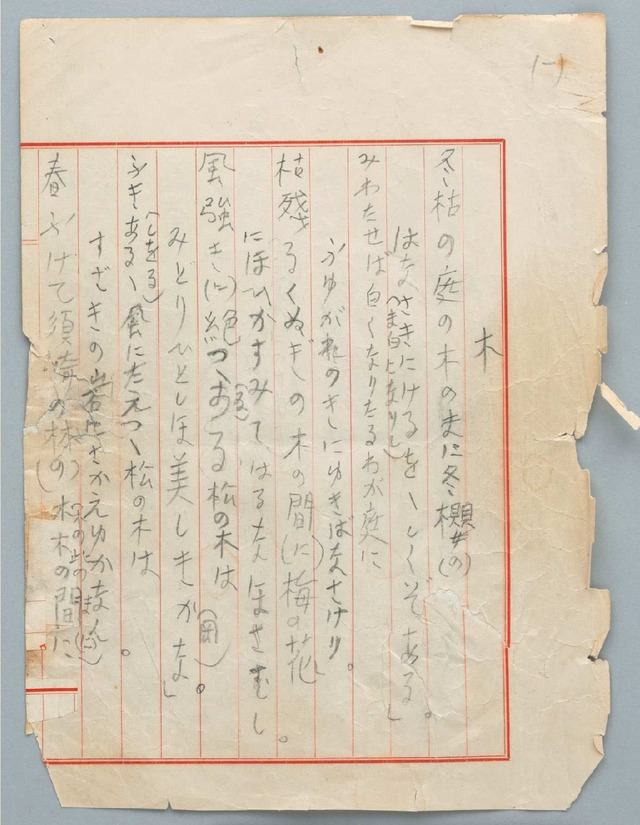 木
冬枯の庭の木のまに冬櫻(の)
はなさきにけるをゝしくぞある」。
みわたせば白くなりたるわが庭に
(ま白となりし)
ふゆがれのきにゆきばなさけり。
枯残るくぬぎの木の間(に)梅の花
にほひかすみてはるなほさむし。
風強き(に)絶つゝある松の木は
みどりひとしほ美しきかな」。
ふきあるゝ風にたえつゝ松の木は
(しをる)
すざきの岩にさかえゆくかな。
春ふけて須崎の林(の)木木の間に